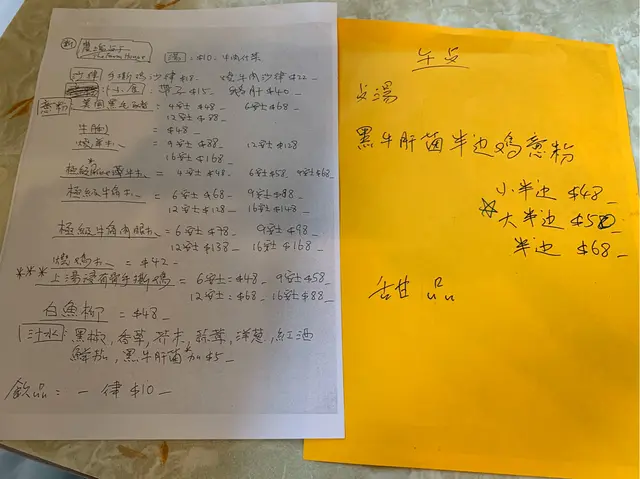 The Farm House
湯: $10. 牛肉什菜
沙律 手撕鸡沙律 $18. 燒牛肉沙律 $22
小食: 帶子 $15. 鵝肝 $40
意粉 = 4安士 $48 6安士 $68
12安士 $88
牛脷 = $48
燒羊扒 = 9安士 $88 12安士 $128
16安士 $168
極級 薄牛扒 = 4安士 $48 6安士 $58 9安士 $68
極級牛角扒 = 6安士 $68 9安士 $88
12安士 $128 16安士 $148
極級牛角肉眼扒 = 6安士 $78 9安士 $98
12安士 $138 16安士 $168
燒鸡扒 = $42
*** 上湯 手撕鷄 = 6安士 = $48 9安士 $58
12安士 = $68 16安士 $88
白魚柳 = $48
汁水: 黑椒, 香草, 芥末, 蒜蓉, 洋葱, 紅酒
鮮茄, 黑牛肝菌 加 $5
飲品: 一律 $10
午点
湯
黑牛肝菌半边鸡意粉
小半边 $48
大半边 $58
半边 $68
甜品